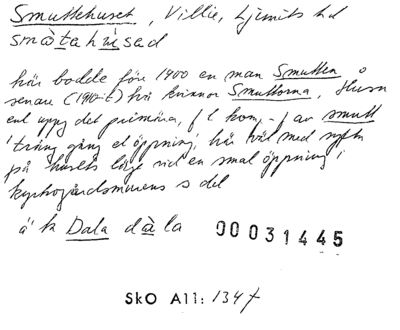 Smuttehuset, Villie, Ljunits hd
smàtahùsad
här bodde före 1900 en man Smutten
senare (1910-t) två kvinnor Smuttorna. Husn
enl uppg det primära, f l kom. f av smutt
'trång gång el öppning', här väl med syftn
på husets läge vid en smal öppning i
kyrkogårdsmurens s del
ä k Dala dàla
00031445
SkO All: 134